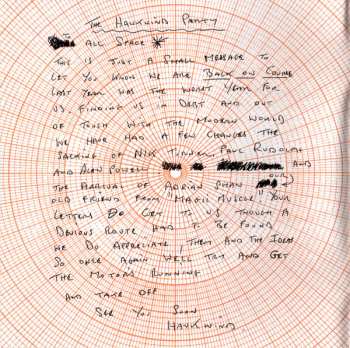 THE HAWKWIND PARTY
TO ALL SPACE
THIS IS JUST A SMALL MESSAGE TO
LET YOU KNOW WE ARE BACK ON COURSE
LAST YEAR WAS THE WORST YEAR FOR
US. FINDING US IN DEBT AND OUT
OF TOUCH WITH THE MODERN WORLD
WE HAVE HAD A FEW CHANGES THE
SACKING OF NIK TURNER, PAUL RUDOLPH
AND ALAN POWELL AND
THE ARRIVAL OF ADRIAN SHAW OUR
OLD FRIEND FROM "MAGIC MUSCLE" YOUR
LETTERS DO GET TO US THOUGH A
DEVIOUS ROUTE HAD TO BE FOUND
WE DO APPRECIATE THEM AND THE IDEAS
SO ONCE AGAIN WE'LL TRY AND GET
THE MOTORS RUNNING
AND TAKE OFF
SEE YOU SOON
HAWKWIND